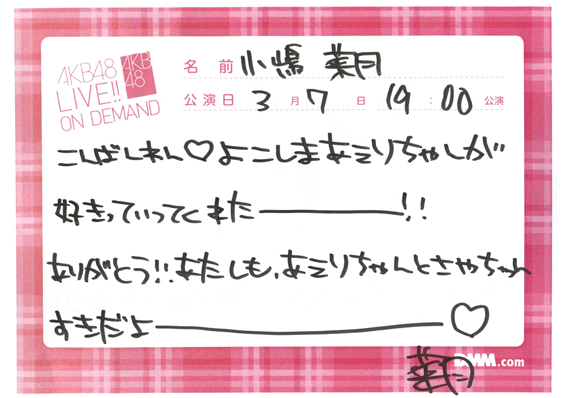 AKB48
LIVE!!
ON DEMAND
AKB
48
名前 小嶋 菜月
公演日 3月7日 19:00公演
こんばんわん♡よこしまあえりちゃんが
好きっていってくれた————!!
ありがとう!!あたしも、あえりちゃんとさやちゃん
すきだよ————♡
菜月
DMM.com